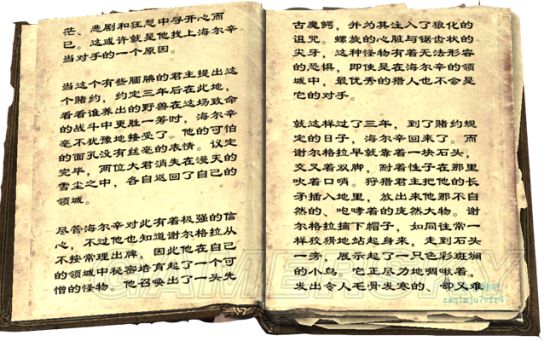 茫、悲剧和狂怒中寻开心而
已。这或许就是他找上海尔辛
当对手的一个原因。
当这个有些腼腆的君主提出这
个赌约，约定三年后在此地，
看看谁养出的野兽在这场致命
的战斗中更胜一筹时，海尔辛
毫不犹豫地接受了。他的可怕
的面孔没有丝毫的表情。议定
完毕，两位大君消失在漫天的
雪尘之中，各自返回了自己的
领域。
尽管海尔辛对此有着极强的信
心，不过他也知道谢尔格拉从
不按常理出牌，因此他在自己
的领域中秘密培育起了一个可
憎的怪物。他召唤出了一头先
古魔鳄，并为其注入了狼化的
诅咒。螺旋的心脏与锯齿状的
尖牙，这种怪物有着无法形容
的恐惧，即使是在海尔辛的领
域中，最优秀的猎人也不会是
它的对手。
就这样过了三年，到了赌约规
定的日子，海尔辛回来了。而
谢尔格拉早就靠着一块石头，
交叉着双脚，耐着性子在那里
吹着口哨。狩猎君主把他的长
矛插入地里，放出来他那不自
然的、咆哮着的庞然大物。谢
尔格拉摘下帽子，如同往常一
样狡猾地站起身来，走到石头
一旁，展示起了一只色彩斑斓
的小鸟。它正尽力地啁啾着，
发出令人毛骨发寒的、却又难
GAMERSKY
zaqimju7vfr4